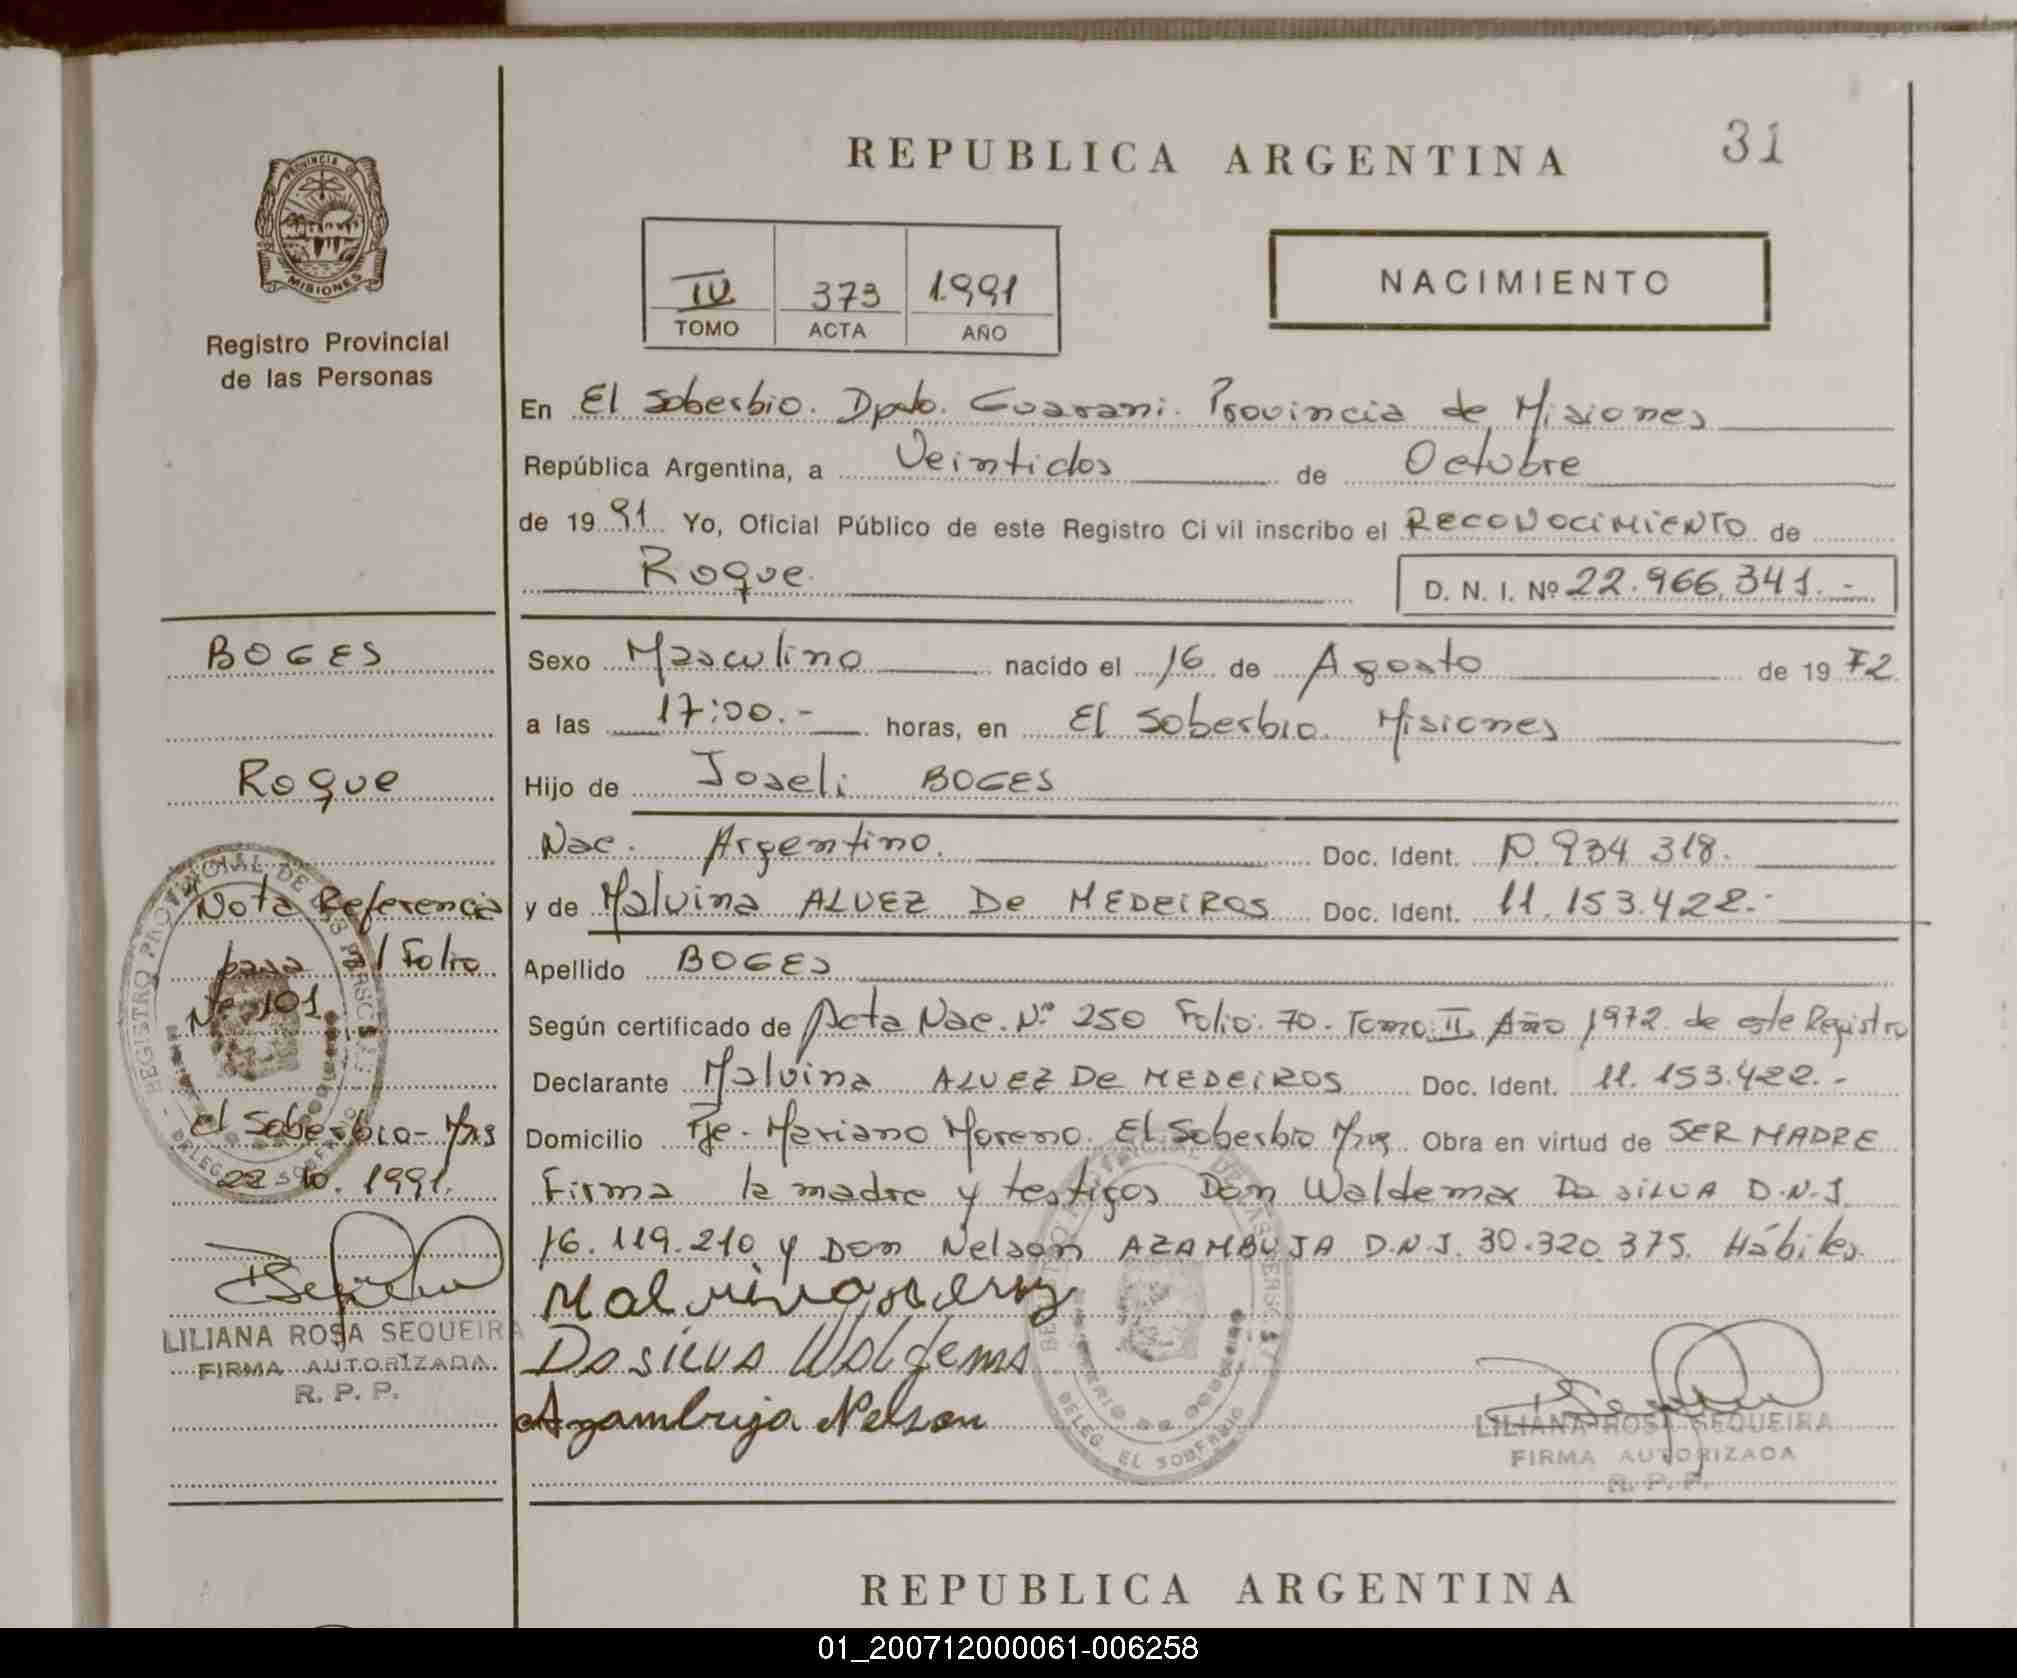 REPUBLICA ARGENTINA
31
PROVINCIA DE
MISIONES
Registro Provincial
de las Personas
IV 373 1.991
TOMO ACTA AÑO
NACIMIENTO
En El Soberbio. Dpto. Guarani. Provincia de Misiones
República Argentina, a Veintidos de Octubre
de 19 91 Yo, Oficial Público de este Registro Civil inscribo el RECONOCIMIENTO de
Roque. D. N. I. Nº 22.966.341.-
BOGES
Sexo Masculino nacido el 16 de Agosto de 19 72
a las 17:00.- horas, en El Soberbio. Misiones
Roque
Hijo de Joseli BOGES
Nac. Argentino. Doc. Ident. 934 318.
y de Malvina ALVEZ De MEDEIROS Doc. Ident. 11.153.422.-
Nota Referencia
para al Folio
Nº 101.
Apellido BOGES
Según certificado de Acta Nac. Nº 250 Folio. 70. Tomo: II. Año 1972. de este Registro
Declarante Malvina ALVEZ De MEDEIROS Doc. Ident. 11.153.422.-
El Soberbio - Mns
22 10. 1991.
Domicilio Pje. Mariano Moreno. El Soberbio Mns. Obra en virtud de SER MADRE
Firma la madre y testigos Don Waldemar Da SILVA D.N.I.
16.119.210 y Don Nelson AZAMBUJA D.N.I. 30.320.375. Hábiles.
REGISTRO PROVINCIAL DE LAS PERSONAS
DELEG. EL SOBERBIO
LILIANA ROSA SEQUEIRA
FIRMA AUTORIZADA
R. P. P.
Dasilva Waldema
Azambuja Nelson
REGISTRO PROVINCIAL DE LAS PERSONAS
DELEG. EL SOBERBIO
LILIANA ROSA SEQUEIRA
FIRMA AUTORIZADA
R. P. P.
REPUBLICA ARGENTINA
01_200712000061-006258